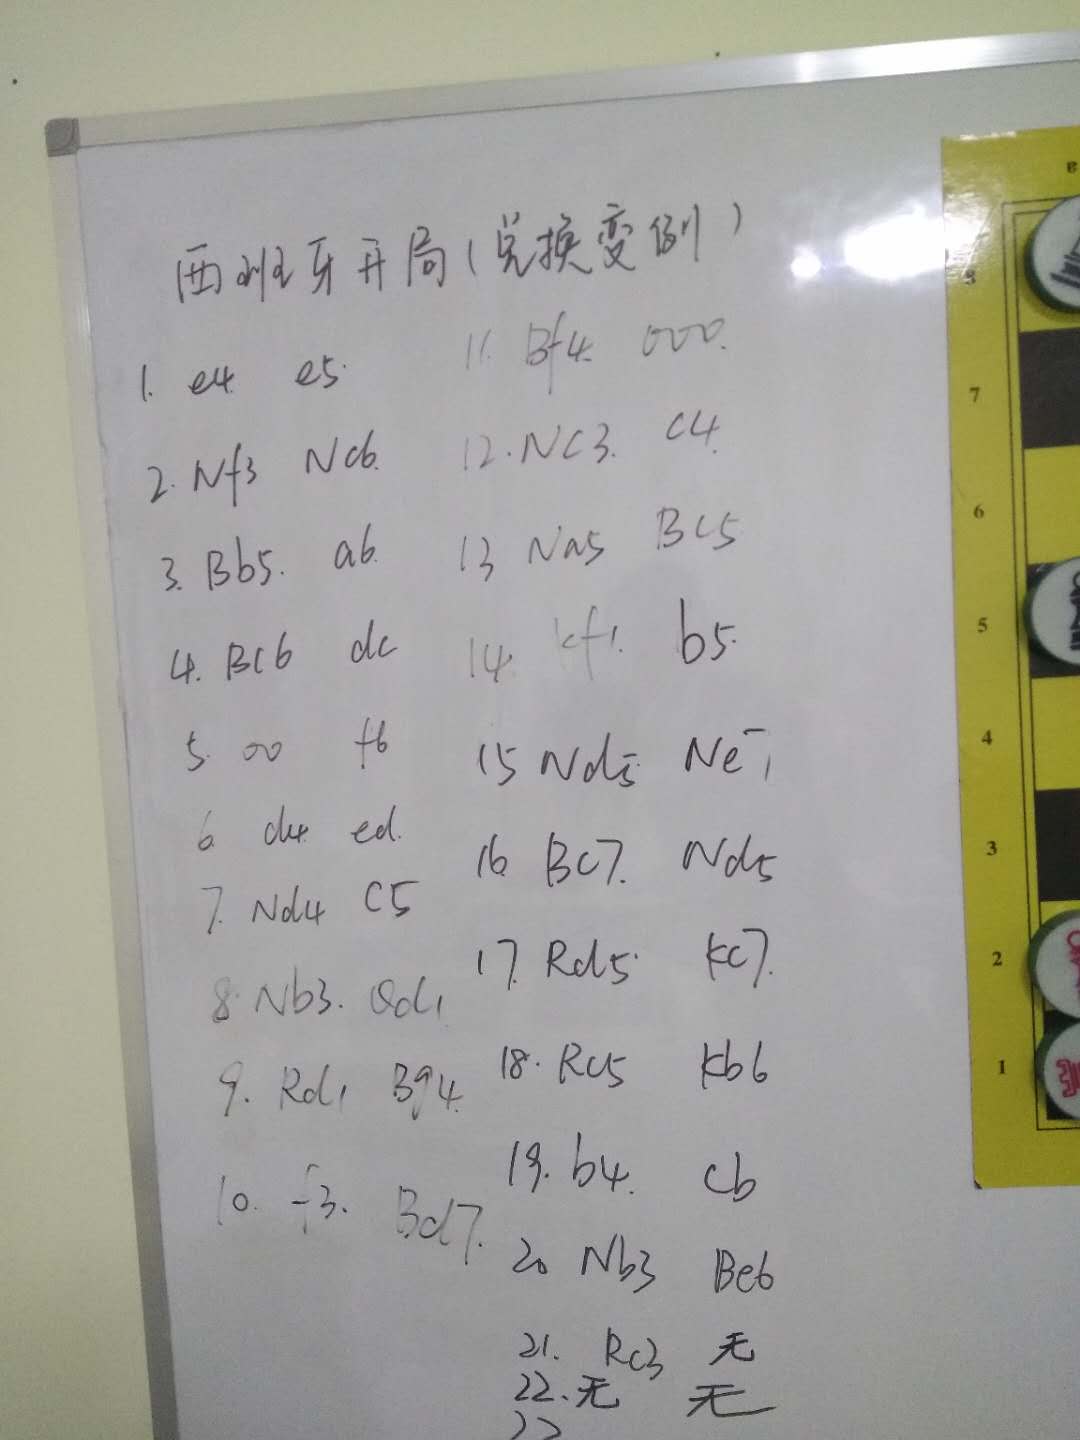 西班牙开局(兑换变例)
1. e4 e5.
2. Nf3 Nc6.
3. Bb5. a6.
4. Bc6 dc
5. 00 f6
6. d4 ed.
7. Nd4 C5
8. Nb3. Qd1
9. Rd1 Bg4.
10. f3. Bd7.
11. Bf4. 000.
12. NC3. C4.
13 Na5 BC5
14. kf1. b5.
15 Nd5 Ne7
16 BC7. Nd5
17. Rd5. KC7.
18. Rc5 Kb6
19. b4. Cb
20 Nb3 Be6
21. Rc3 无
22. 无 无
8
7
6
5
4
3
2
1